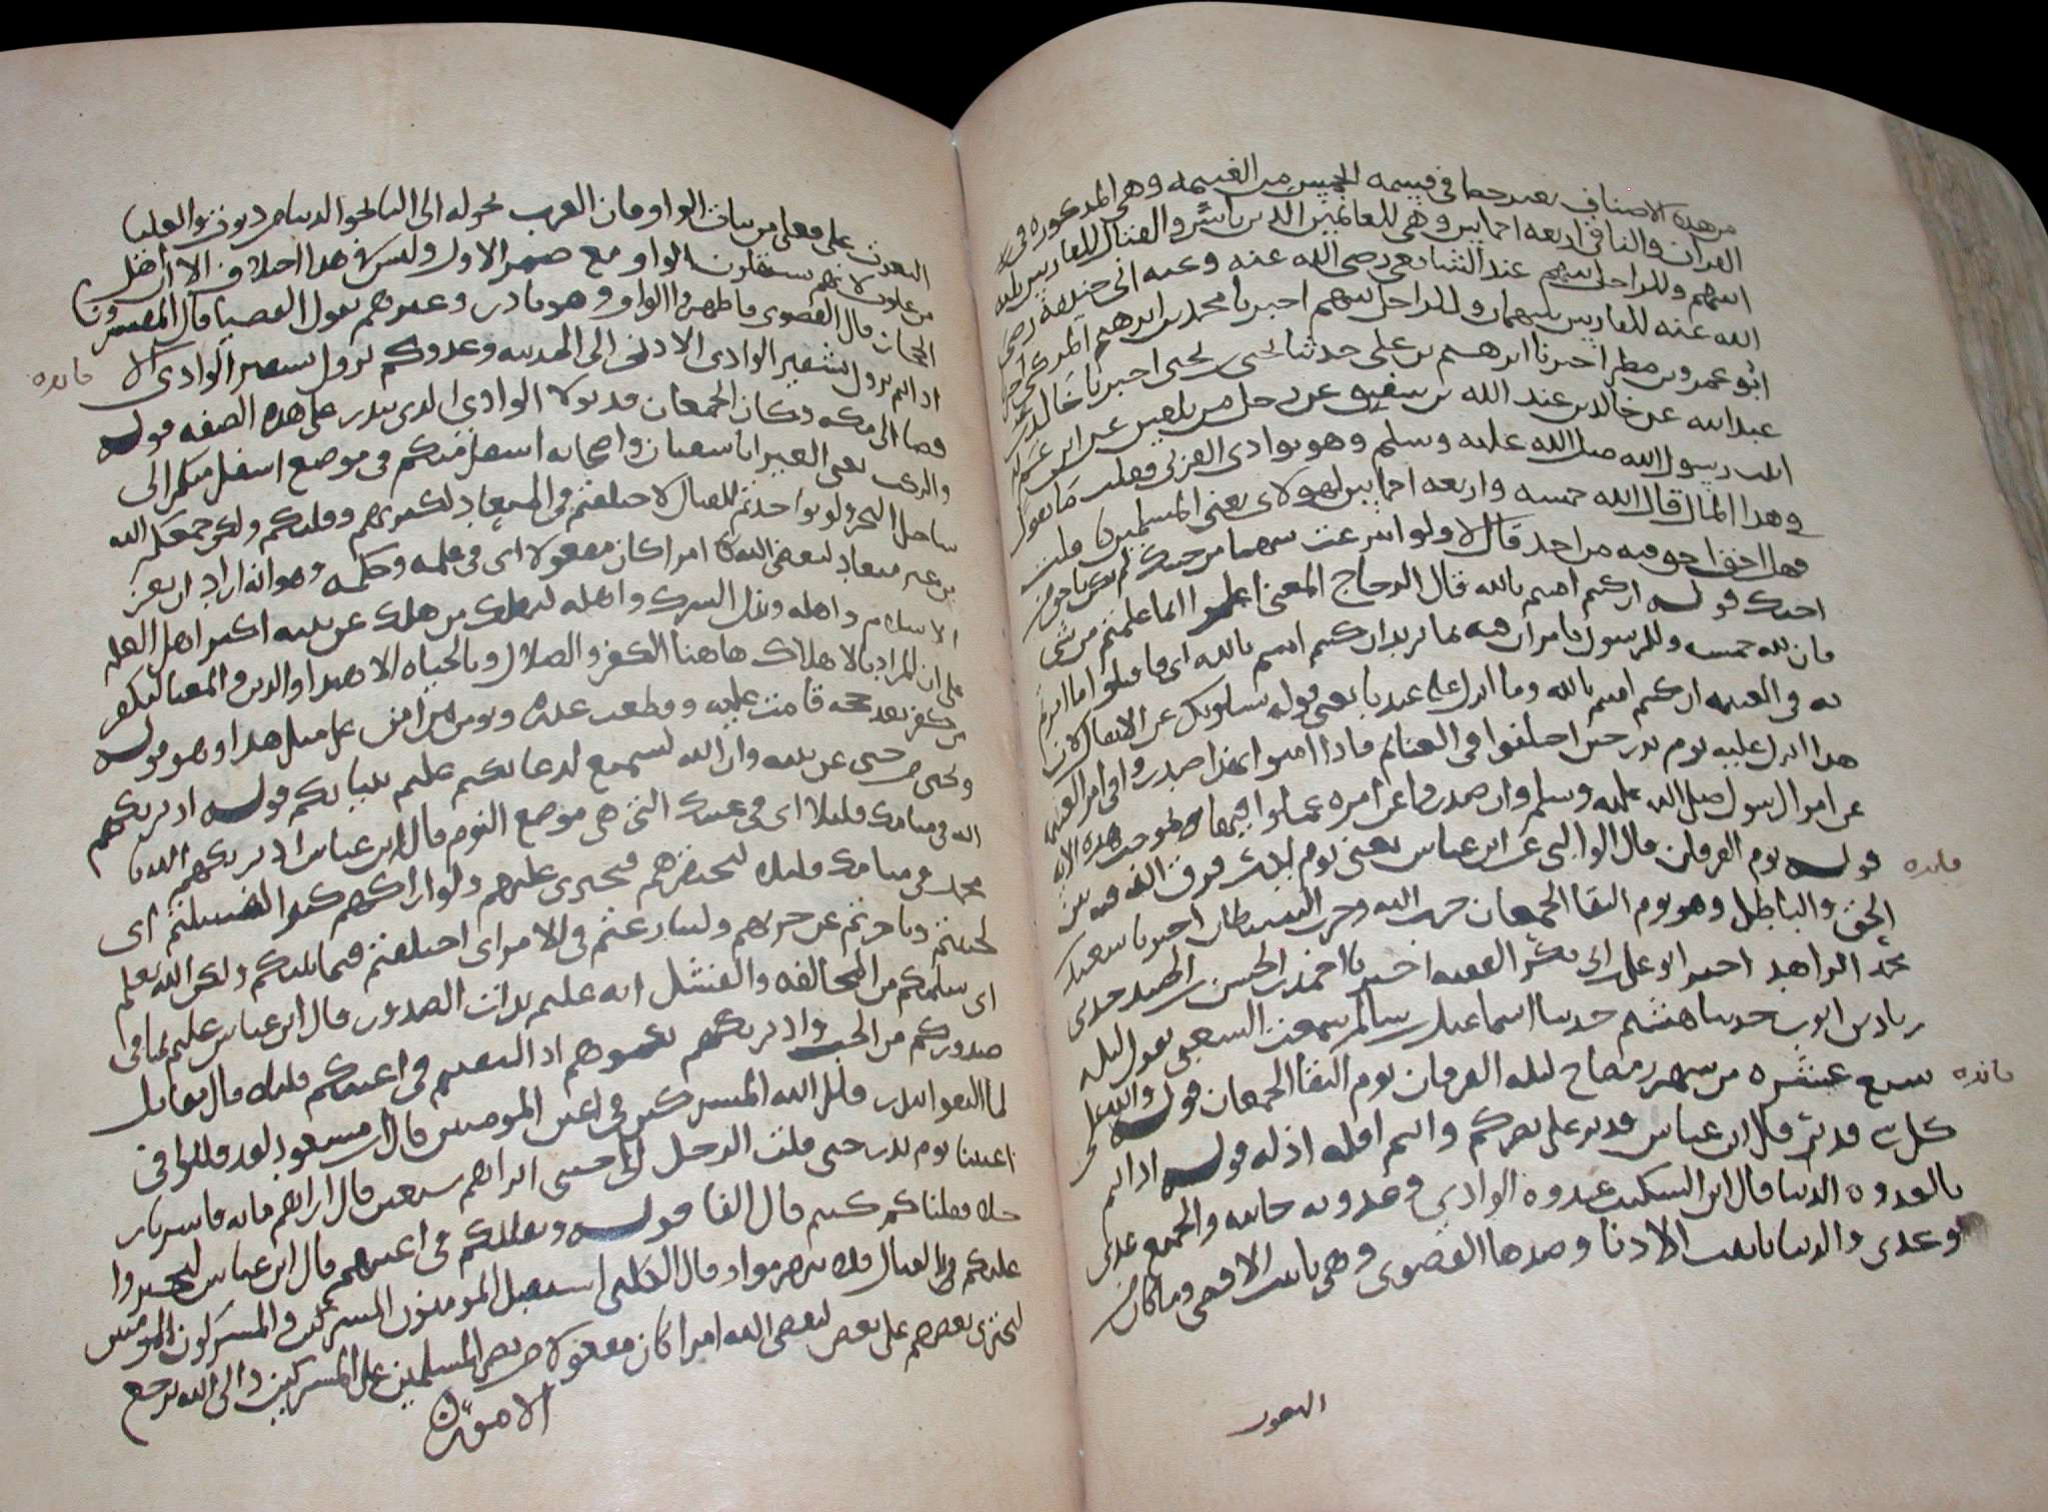 من هذه الاصناف بعد حظا في قسمه الخمس من الغنيمه وهي المذكوره في
القران والباقي اربعه اخماس وهي للغانمين الذين باشروا القتال للفارس ثلثه
اسهم وللراجل سهم عند الشافعي رضي الله عنه وعند ابي حنيفه رضي
الله عنه للفارس سهمان وللراجل سهم اخبرنا محمد بن ابرهيم المزكي اخبرنا
ابو عمرو بن مطر اخبرنا ابرهيم بن علي حدثنا يحيى بن يحيى اخبرنا خالد بن
عبد الله عن خالد عن عبد الله بن سفيق عن رجل من بلقين عن ابن عم له
اتيت رسول الله صلى الله عليه وسلم وهو بوادي القرى فقلت ما تقول
في هذا المال قال لله خمسه واربعه اخماس لهولاى يعني المسلمين قلت
فهل احق احق به من احد قال لا ولو انتزعت سهما من جنبك لم تكن باحق من
اخيك قوله ان كنتم امنتم بالله قال الزجاج المعنى اعلموا انما غنمتم من شي
فان لله خمسه وللرسول يامران فيه بما يريد ان كنتم امنتم بالله اى فاقبلوا ما امرتم
به في الغنيمه ان كنتم امنتم بالله وما انزل على عبدنا يعني قوله يسلونك عن الانفال لان
هذا انزل عليه يوم بدر حين اختلفوا في الغنائم
قوله يوم الفرقان قال الوالبي عن ابن عباس يعني يوم بدر فرق الله فيه بين
الحق والباطل وهو يوم التقا الجمعان حزب الله وحزب الشيطان اخبرنا سعيد بن
محمد الزاهد اخبرنا ابو علي بن ابي بكر الفقيه اخبرنا احمد بن الحسين حدثنى
زياد بن ايوب حدثنا هشيم حدثنا اسماعيل بن سالم سمعت الشعبي يقول ليله
سبع عشره من شهر رمضان ليله الفرقان يوم التقا الجمعان قوله والله على
كل شي قدير قال ابن عباس قدير على نصركم وانتم اقله اذله قوله اذ انتم
بالعدوه الدنيا قال ابن السكيت عدوه الوادي وعدوته جانبه والجمع عدى
وعدى والدنيا تانيث الادنا وضدها القصوى وهي تانيث الاقصى وما كان
النعوت
فائده
فائده
النعوت على فعلى من بنات الواو فان العرب تحوله الى اليا نحو الدنيا من دنوت والعليا
من علوت لانهم يستثقلون الواو مع ضمه الاول وليس في هذا اختلاف الا ان اهل
الحجاز قال القصوى فاظهروا الواو وهو نادر وغيرهم يقول القصيا قال المفسرون
اذ انتم نزول بشفير الوادى الادنى الى المدينه وعدوكم نزول بشفير الوادى الا
قصا الى مكه وكان الجمعان قد نزلا الوادى الذي ببدر على هذه الصفه قوله
والركب يعني العير ابا سفيان واصحابه اسفل منكم في موضع اسفل منكم الى
ساحل البحر ولو تواعدتم للقتال لاختلفتم في الميعاد لكثرتهم وقلتكم ولكن جمعكم الله
من غير ميعاد ليقضي الله امرا كان مفعولا اى في علمه وحكمه وهو انه اراد ان يعز
الاسلام واهله ويذل الشرك واهله ليهلك من هلك عن بينه اكثر اهل العلم
على ان المراد بالاهلاك هاهنا الكفر والضلال وبالحياه الاهتدا والدين والمعنا ليكفر
من كفر بعد حجه قامت عليه وقطعت عذره ويومن من امن على مثل هذا وهو قوله
ويحيى من حيي عن بينه وان الله لسميع لدعائكم عليم بنياتكم قوله اذ يريكهم
الله في منامك قليلا اى في عينك التي هي موضع النوم قال ابن عباس اذ يريكهم الله يا
محمد في منامك قليلا لتحتقرهم فتجترى عليهم ولو اراكهم كثيرا لفشلتم اى
لجبنتم وتاخرتم عن حربهم ولتنازعتم في الامر اى اختلفتم فيما بينكم ولكن الله سلم
اى سلمكم من المخالفه والفشل انه عليم بذات الصدور قال ابن عباس عليم بما في
صدوركم من الحب واذ يريكموهم اذ التقيتم في اعينكم قليلا قال مقاتل
لما التقوا ببدر قلل الله المشركين في اعين المومنين قال ابن مسعود لقد قللوا في
اعيننا يوم بدر حتى قلت لرجل الى جنبي اتراهم سبعين قال اراهم مايه فاسرنا
رجلا فقلنا كم كنتم قال الفا قوله ويقللكم في اعينهم قال ابن عباس ليجتروا
عليكم
ليجترى بعضهم على بعض ليقضي الله امرا كان مفعولا من نصر المسلمين على المشركين والى الله ترجع
الامور
فائده